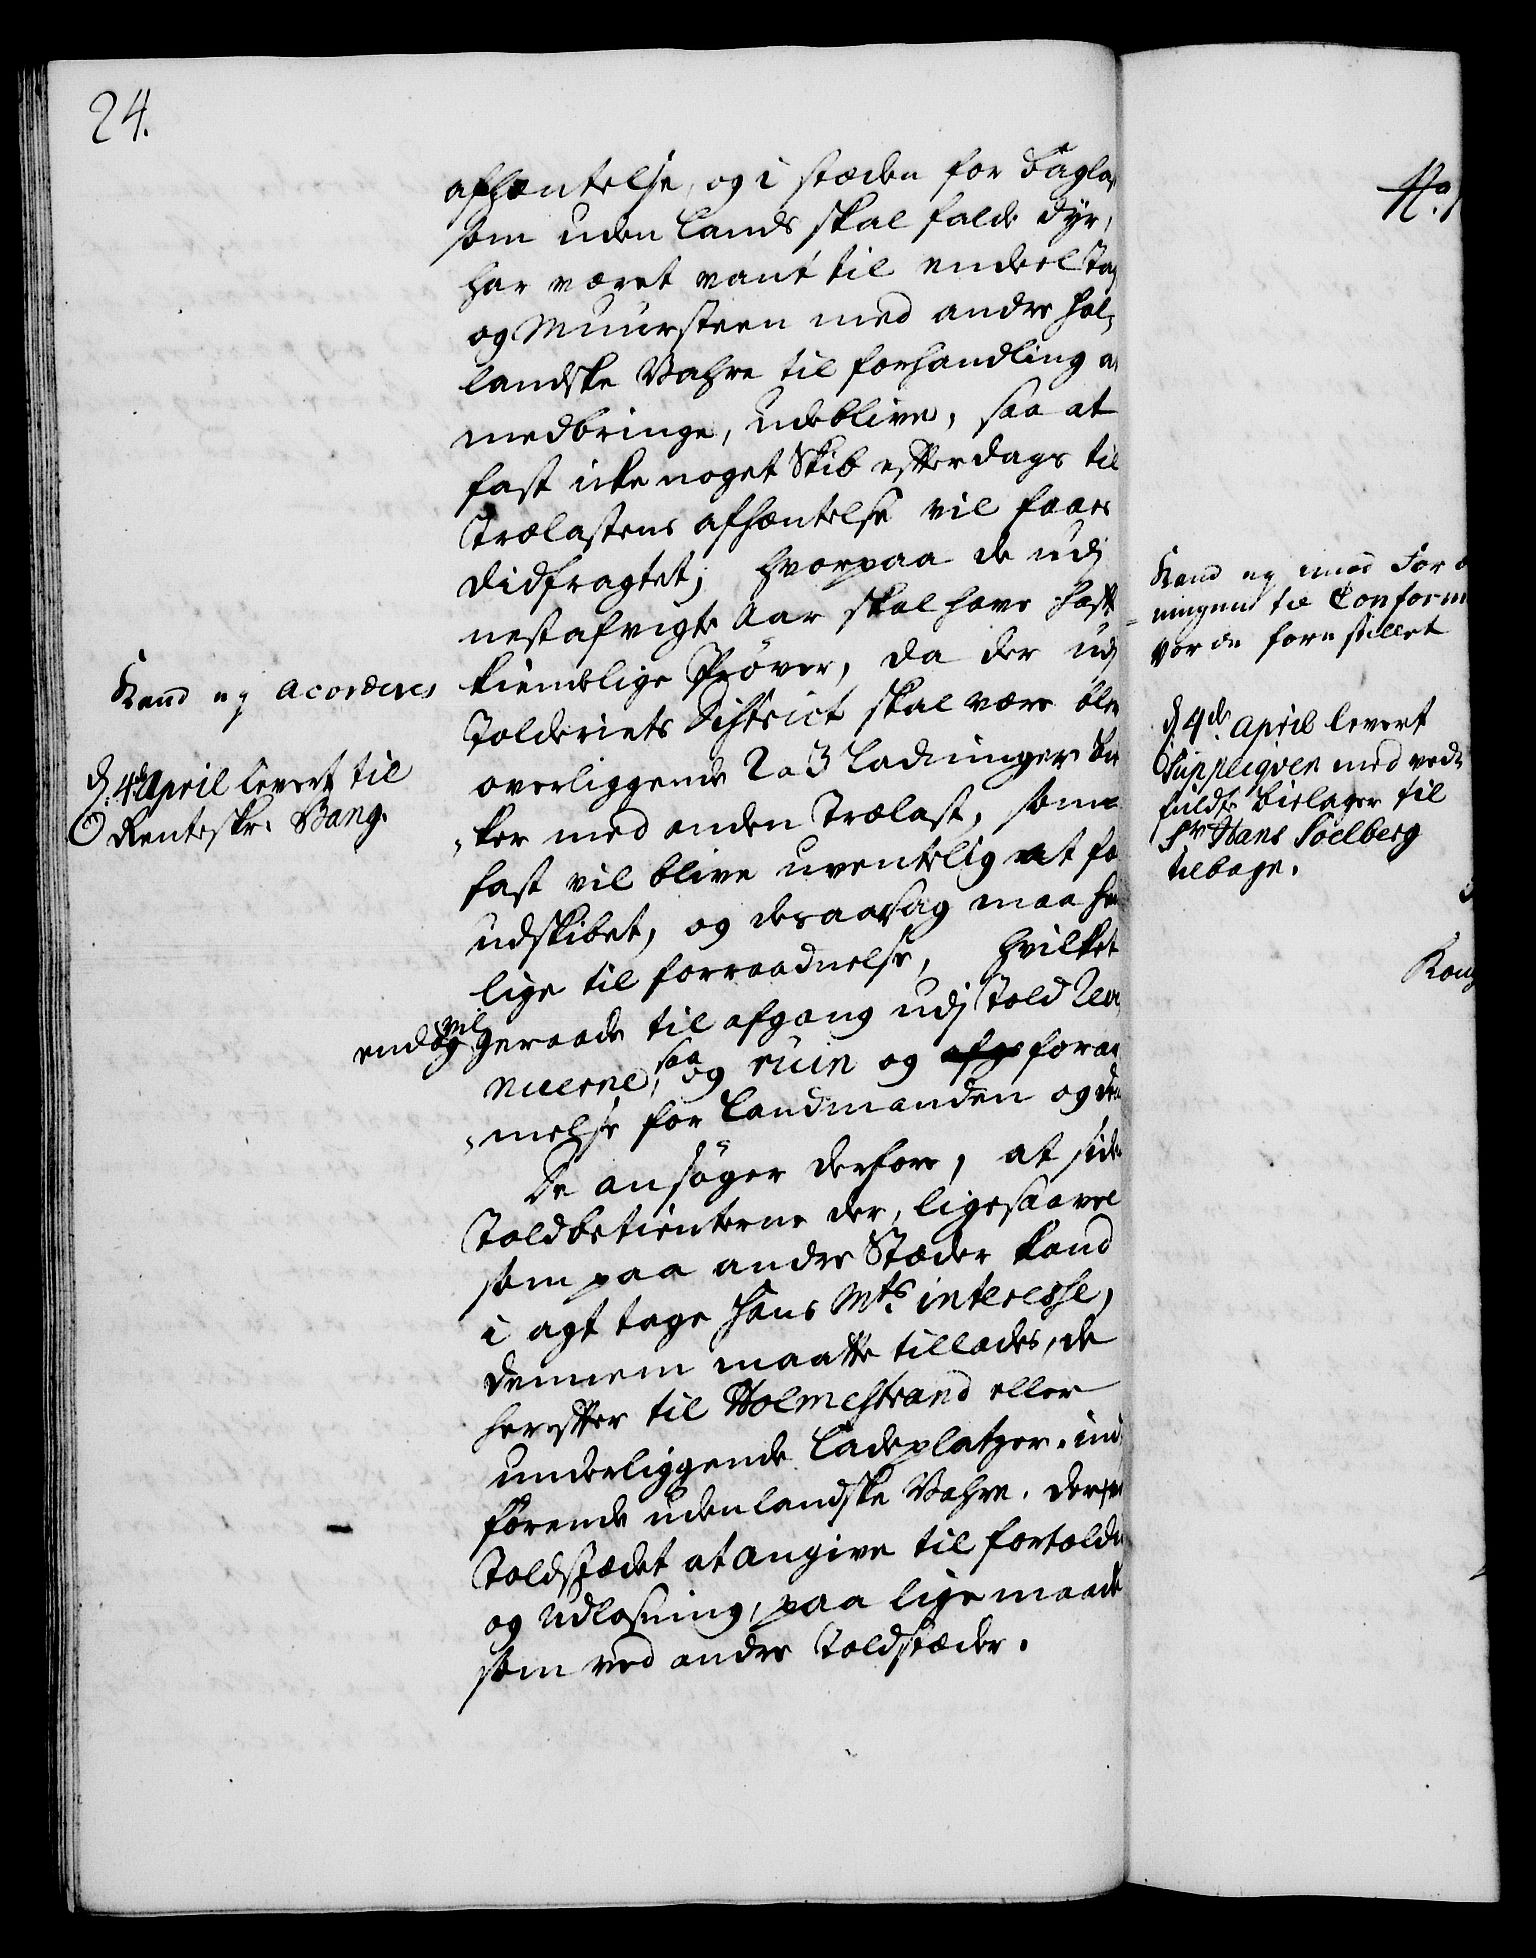 24.
afhæntelse, og i stæden for Bagla
som uden Lands skal falde dyr,
har været vant til endeel Tag
og Muursteen med andre Hol¬
landske Vahre til forhandling at
medbringe, udeblive, saa at
fast icke noget Skib efterdags til
Trælastens afhæntelse vil faaes
didfragtet; hvorpaa de udj
nestafvigte Aar skal have hafft
kiendelige Prøver, da der udj
Tolderiets District skal være ble
overliggende 2 a 3 Ladninger
ker med anden Trælast, som
fast vil blive uventelig at fa
udskibet, og desaarsag maa hen
lige til forraadnelse, hvilket
endog vil geraade til afgang udj Told Reve
nuerne, saa og ruin og forar
melse for Landmanden og dem
De ansøger derfore, at siden
Toldbetienterne der, ligesaavel
som paa andre Stæder kand
i agt tage Hans Mts interesse,
dennem maatte tillades, de
herefter til Holmestrand eller
underliggende Ladeplatzer ind
førende udenlandske Vahre, der ved
Toldstædet at angive til fortoldn
og udlosning, paa lige maade
som ved andre Toldstæder.
Kand ej acorderes
d. 4de April levert til
Renteskr. Bang.
No
Kand ej imod Forord
ningen til Conform
vorde forestillet
d. 4de April levert
Suppliqven med ved
fuldte Bielager til
Sr Hans Soelberg
tilbage.
Kong